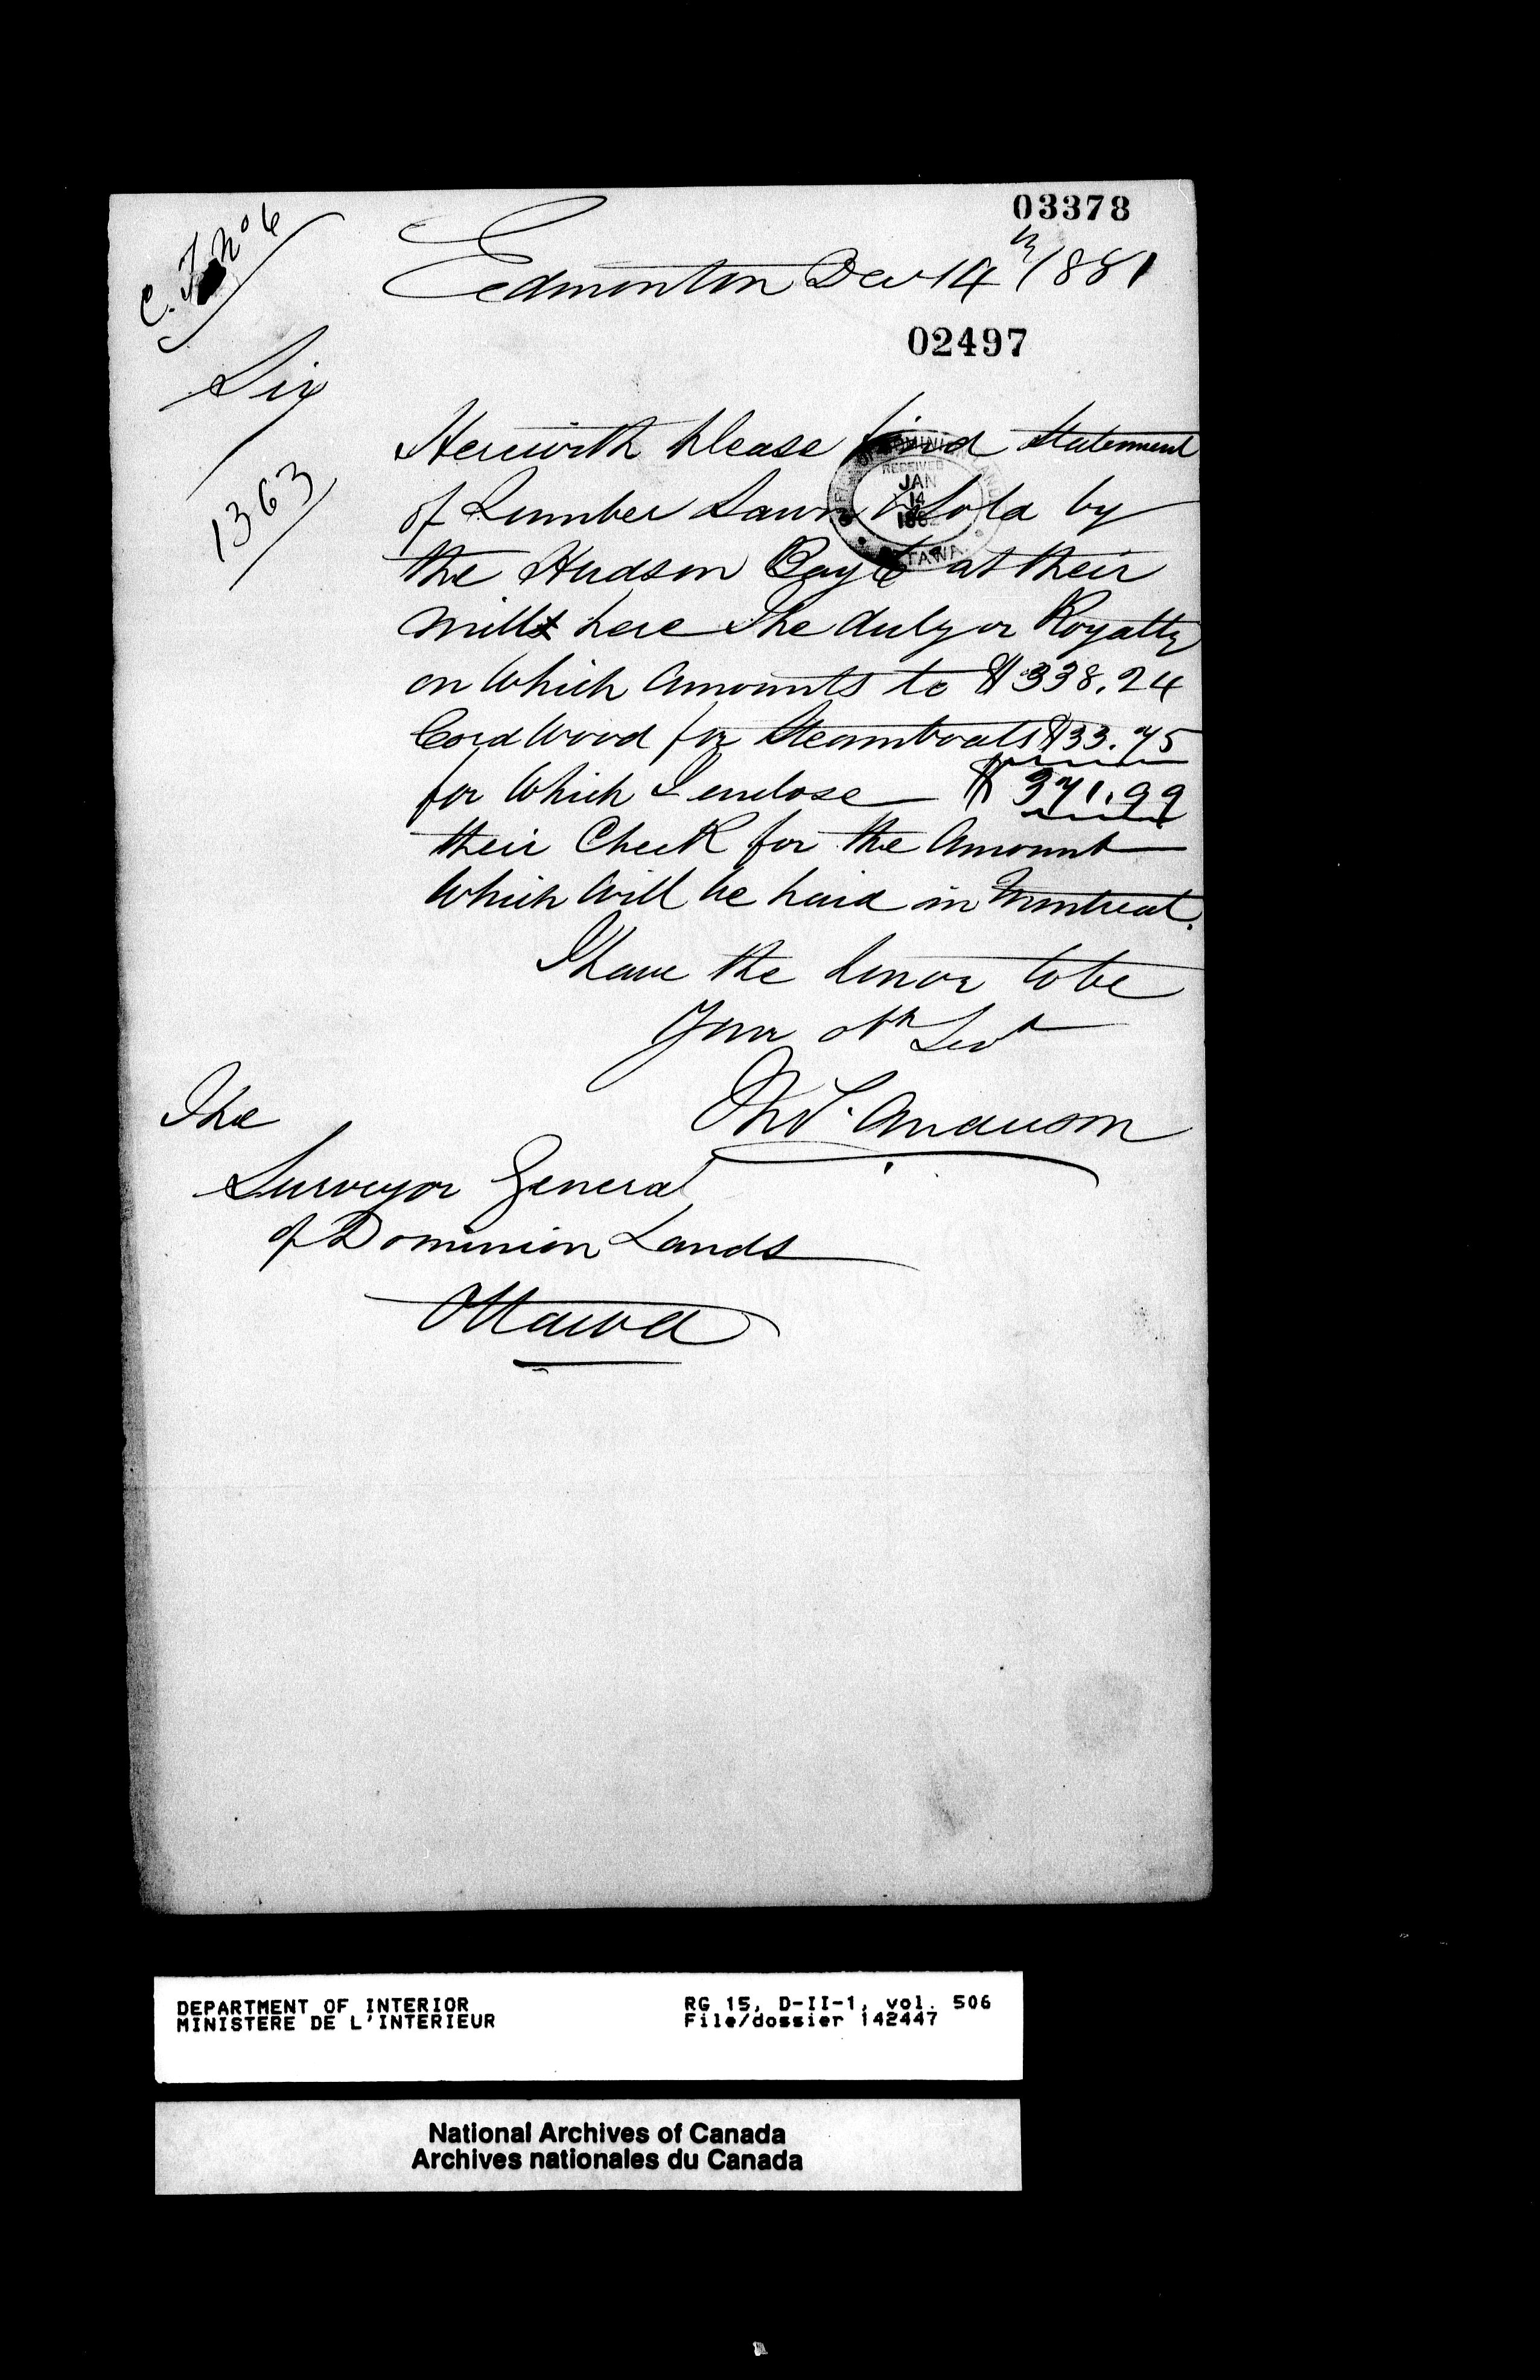 03378
C. T. No 6
Edmonton Dec 14th 1881
02497
Sir
1363
Herewith Please find Statement
of Lumber Sawn & Sold by
the Hudson Bay Co at their
Mill here The duty or Royalty
on Which Amounts to $338.24
Cord Wood for Steamboats $33.75
for Which I enclose $371.99
their Check for the Amount
Which Will be paid in Montreal.
I have the honor to be
Your obt Servt
Thos. Anderson
The
Surveyor General
of Dominion Lands
Ottawa
RECEIVED
JAN
14
188
OTTAWA
DEPARTMENT OF INTERIOR
MINISTERE DE L'INTERIEUR
RG 15, D-II-1, vol. 506
File/dossier 142447
National Archives of Canada
Archives nationales du Canada